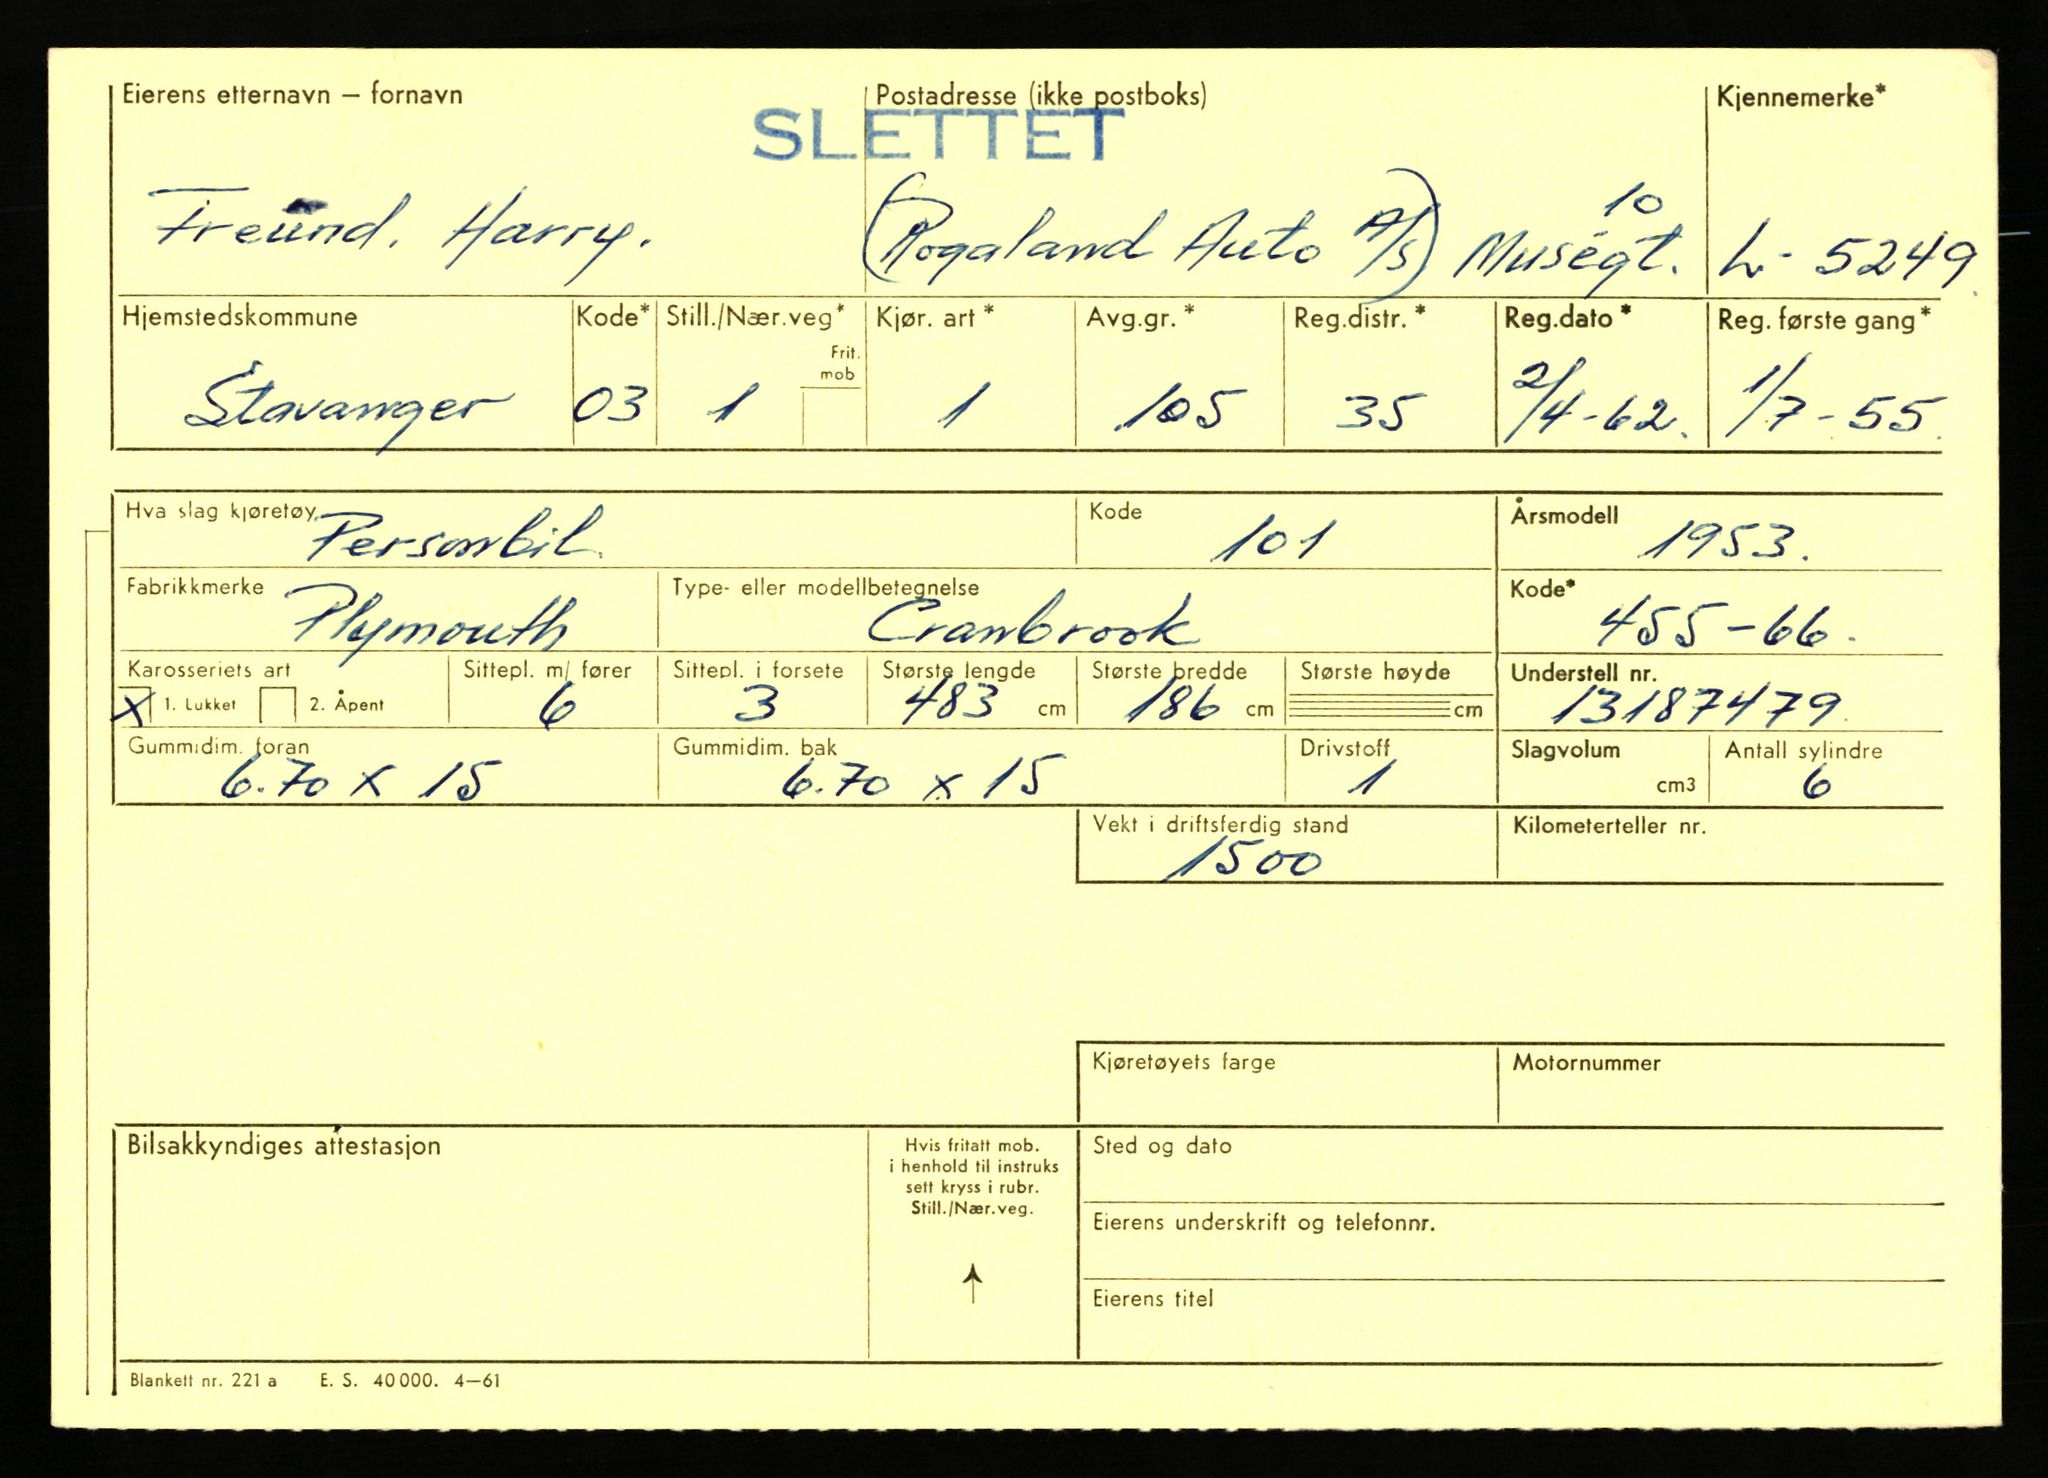 Eierens etternavn – fornavn Postadresse (ikke postboks) Kjennemerke*
SLETTET
Freund. Harry. (Rogaland Auto A/S) Muségt. 10 L- 5249
Hjemstedskommune Kode* Still./Nær.veg* Kjør. art* Avg.gr.* Reg.distr.* Reg.dato* Reg. første gang*
Frit.
mob
Stavanger 03 1 1 105 35 2/4-62. 1/7-55.
Hva slag kjøretøy Personbil. Kode 101 Årsmodell 1953.
Fabrikkmerke Plymouth Type- eller modellbetegnelse Cranbrook Kode* 455-66.
Karosseriets art Sittepl. m/ fører Sittepl. i forsete Største lengde Største bredde Største høyde Understell nr.
X 1. Lukket 2. Åpent 6 3 483 cm 186 cm cm 13187479.
Gummidim. foran Gummidim. bak Drivstoff Slagvolum Antall sylindre
6.70 x 15 6.70 x 15 1 cm3 6
Vekt i driftsferdig stand Kilometerteller nr.
1500
Kjøretøyets farge Motornummer
Bilsakkyndiges attestasjon Hvis fritatt mob. Sted og dato
i henhold til instruks
sett kryss i rubr.
Still./Nær.veg.
Eierens underskrift og telefonnr.
Eierens titel
Blankett nr. 221 a E. S. 40 000. 4–61